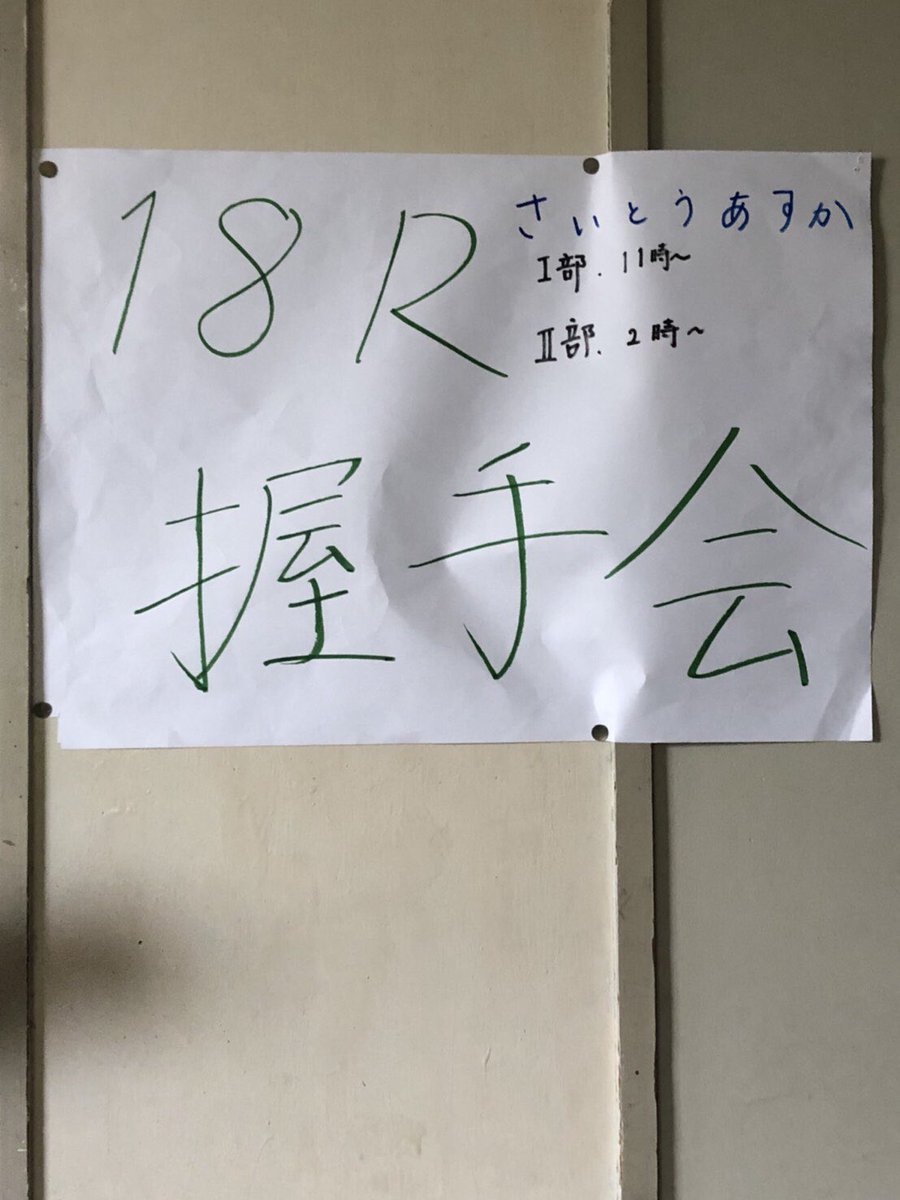 18R
さいとうあすか
Ⅰ部. 11時~
Ⅱ部. 2時~
握手会